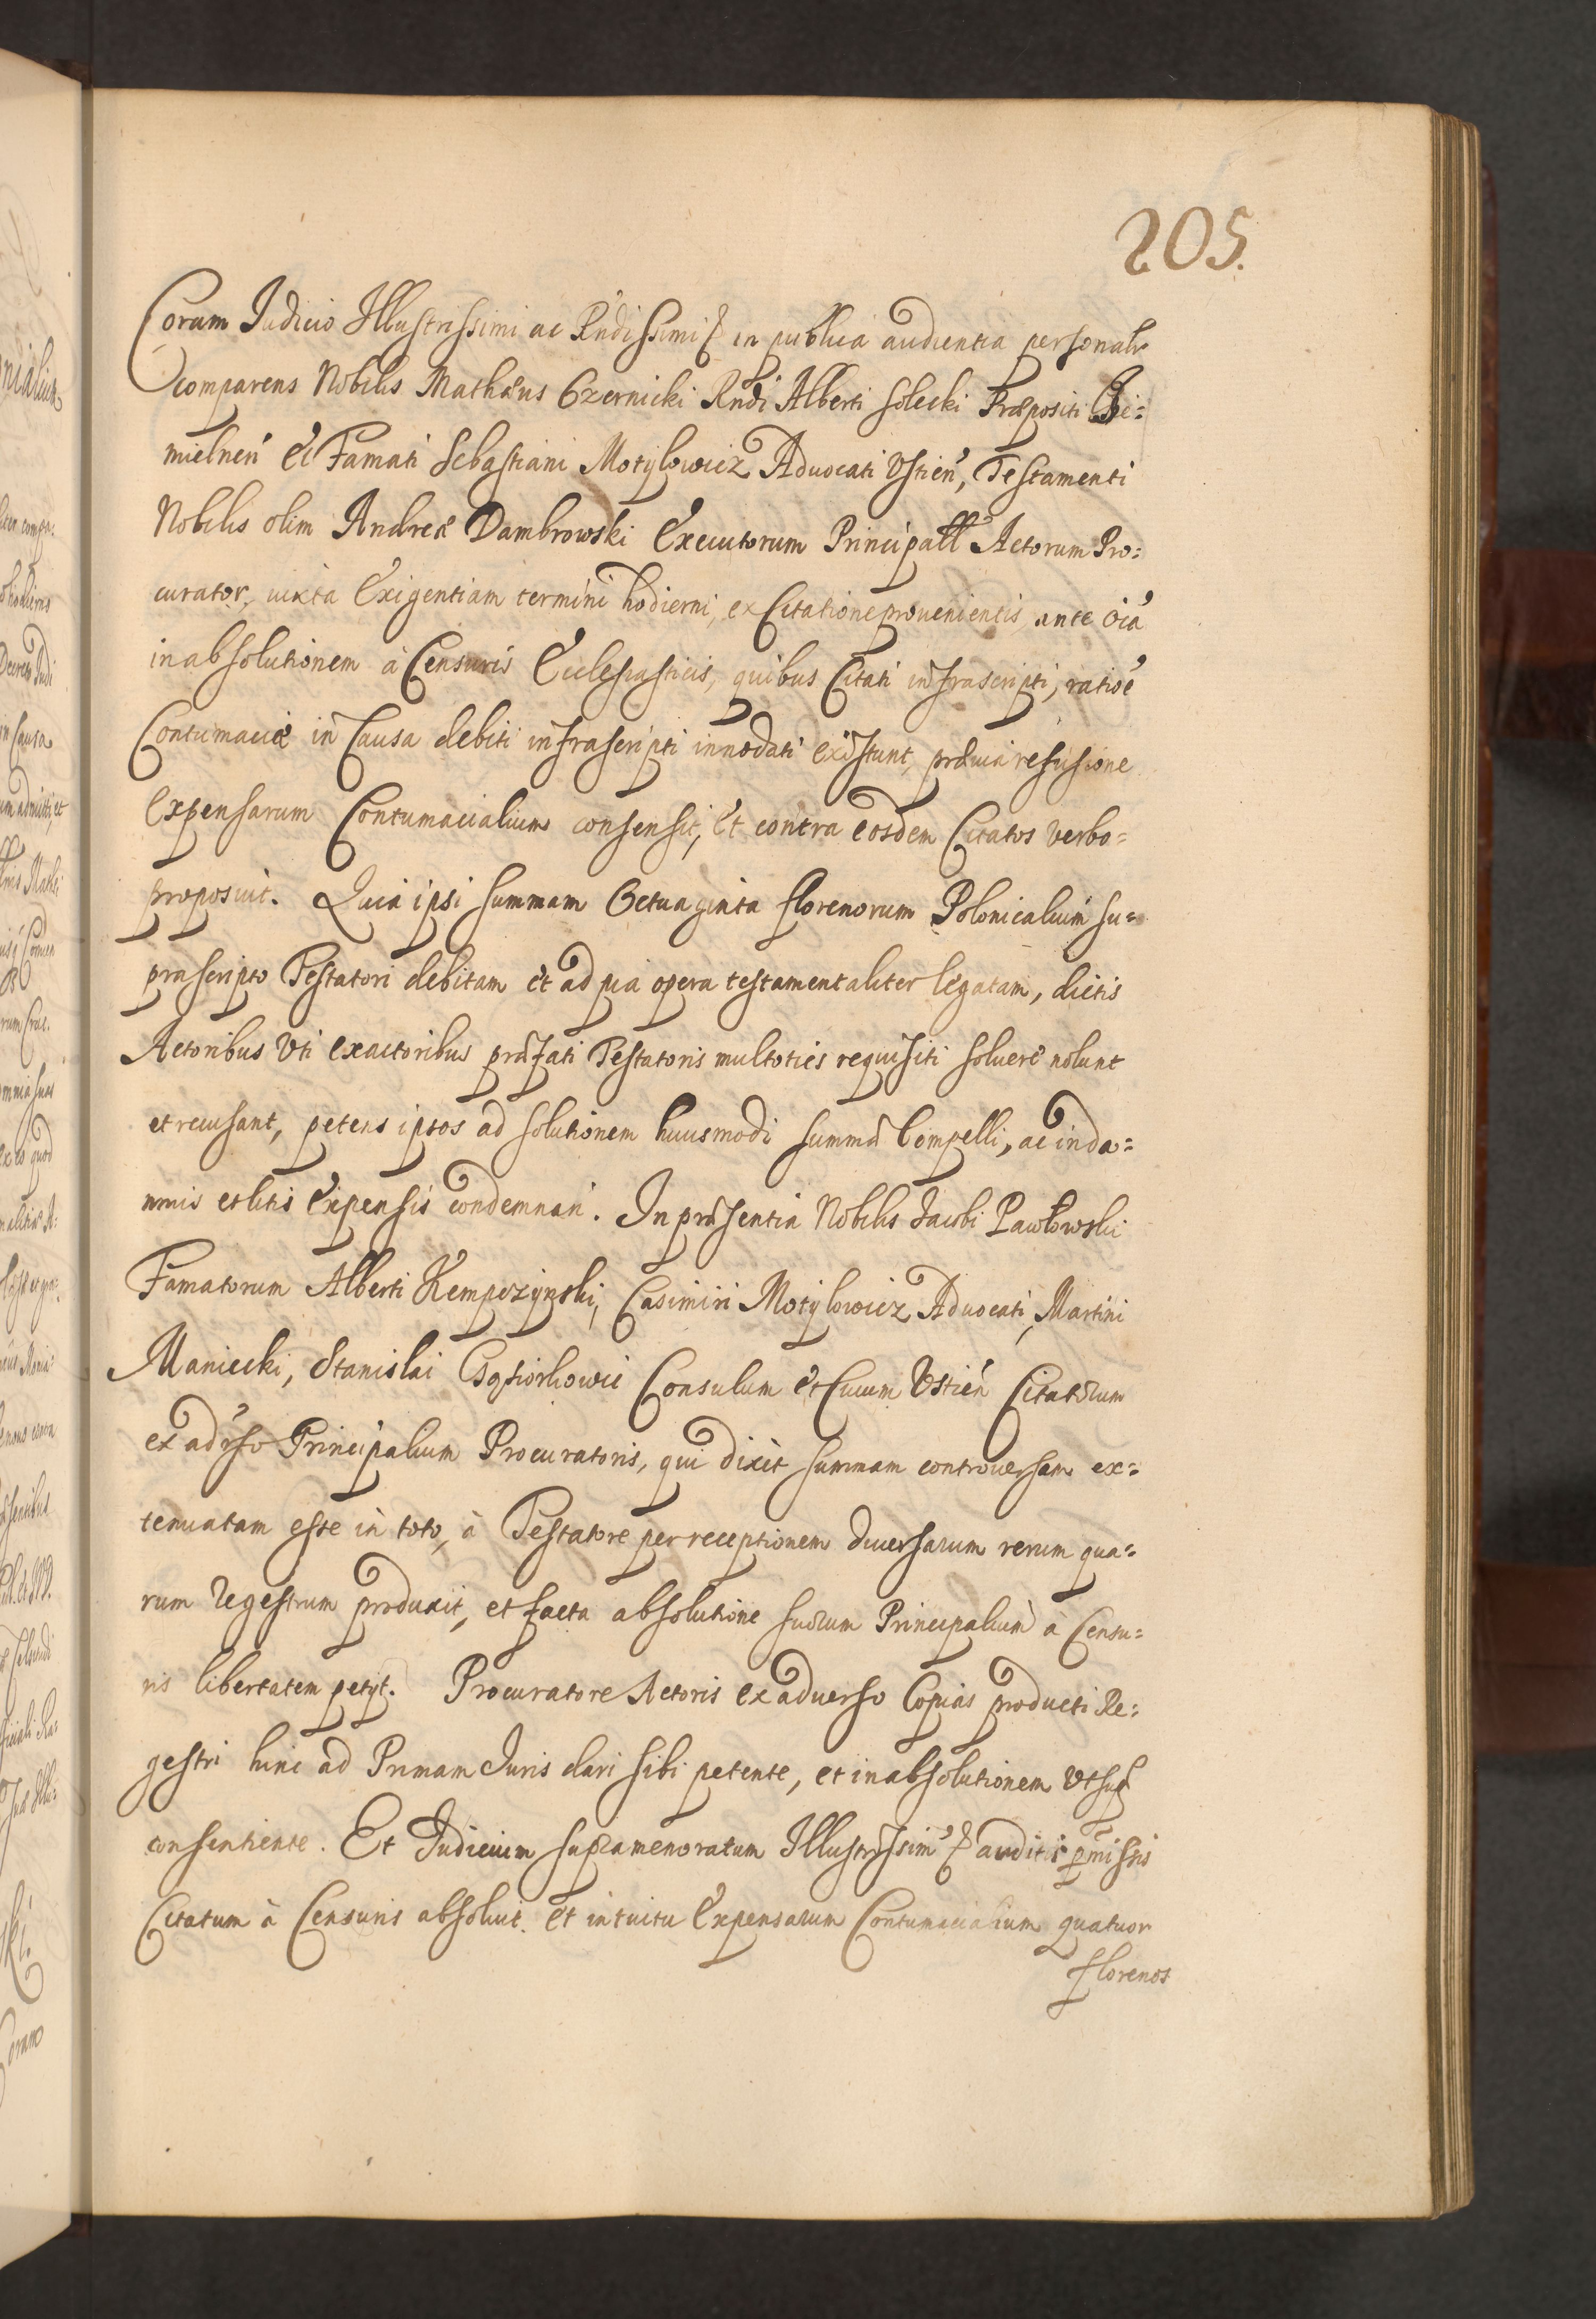 205.
Coram Judicio Illustrissimi ac Rndissimi in publica audientia personalr
comparens Nobilis Mathæus Czernicki Rndi Alberti Solecki Præpositi
mielnen Et Famati Sebastiani Motylowicz Advocati Ustien, Testamenti
Nobilis olim Andreæ Dambrowski Executorum Principall Actorum Pro=
curator, iuxta Exigentiam termini hodierni, ex Citatione provenientis, ante oia
in absolutionem à Censuris Ecclesiasticis, quibus Citati infrascripti, ratioe
Contumaciæ in Causa debiti infrascripti innodati existunt, prævia refusione
Expensarum Contumacialium consensit, Et contra eosdem Citatos verbo=
proposuit. Quia ipsi summam Octuaginta florenorum Polonicalium su=
prascripto Testatori debitam et ad pia opera testamentaliter legatam, dictis
Actoribus Uti exactoribus præfati Testatoris multoties requisiti solvere nolunt
et recusant, petens ipsos ad solutionem huiusmodi summæ Compelli, ac in da=
mnis et litis Expensis condemnari. In præsentia Nobilis Jacobi Pawłowski
Famatorum Alberti Kempczynski, Casimiri Motylowicz Advocati, Martini
Maniecki, Stanislai Consulum et Civium Ustien Citatorum
ex advso Principalium Procuratoris, qui dixit summam controversam ex=
tenuatam esse in toto, à Testatore per receptionem diversarum rerum qua=
rum Regestrum produxit, et facta absolutione suorum Principalium à Censu=
ris libertatem petyt. Procuratore Actoris ex adverso Copias producti Re=
gestri hinc ad Primam Juris dari sibi petente, et in absolutionem Ut sup
consentiente. Et Judicium supramenoratum Illustrissim auditis pmissis
Citatum à Censuris absolvit et intuitu Expensarum Contumacialium quatuor
florenos